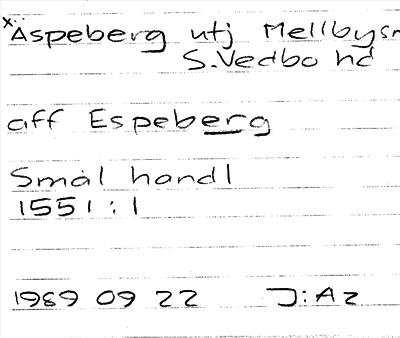 x. Aspeberg utj Mellbysn
S.Vedbo hd
aff Espeberg
Smål handl
1551:1
1989 09 22 J:Az